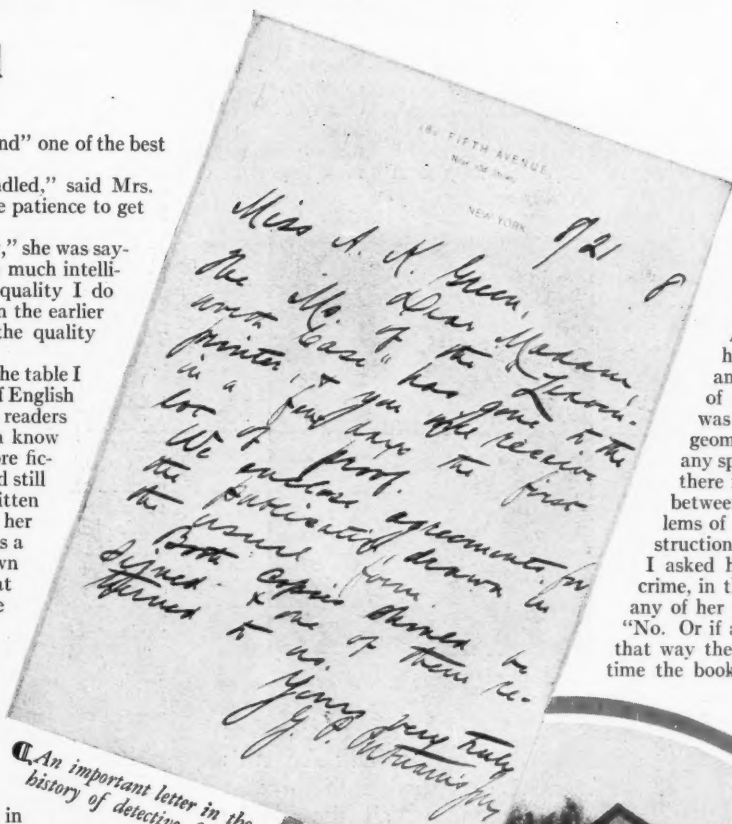 nd" one of the best
dled," said Mrs.
e patience to get
," she was say-
much intelli-
quality I do
n the earlier
the quality
he table I
f English
readers
know
re fic-
d still
itten
her
s a
wn
at
e
in
FIFTH AVENUE
NEW YORK
8/21 8
Miss A. K. Green,
Dear Madam,
The Ms. of the "Leaven-
worth Case" has gone to the
printer, & you will receive
in a few days the first
lot of proof.
We enclose agreements for
the publication drawn in
the usual form.
Both copies should be
signed & one of them re-
turned to us.
Yours very truly
G. P. Putnam's
An important letter in the
history of detective
h
an
of
was
geom
any sp
there
between
lems of
struction
I asked h
crime, in th
any of her
"No. Or if a
that way the
time the book